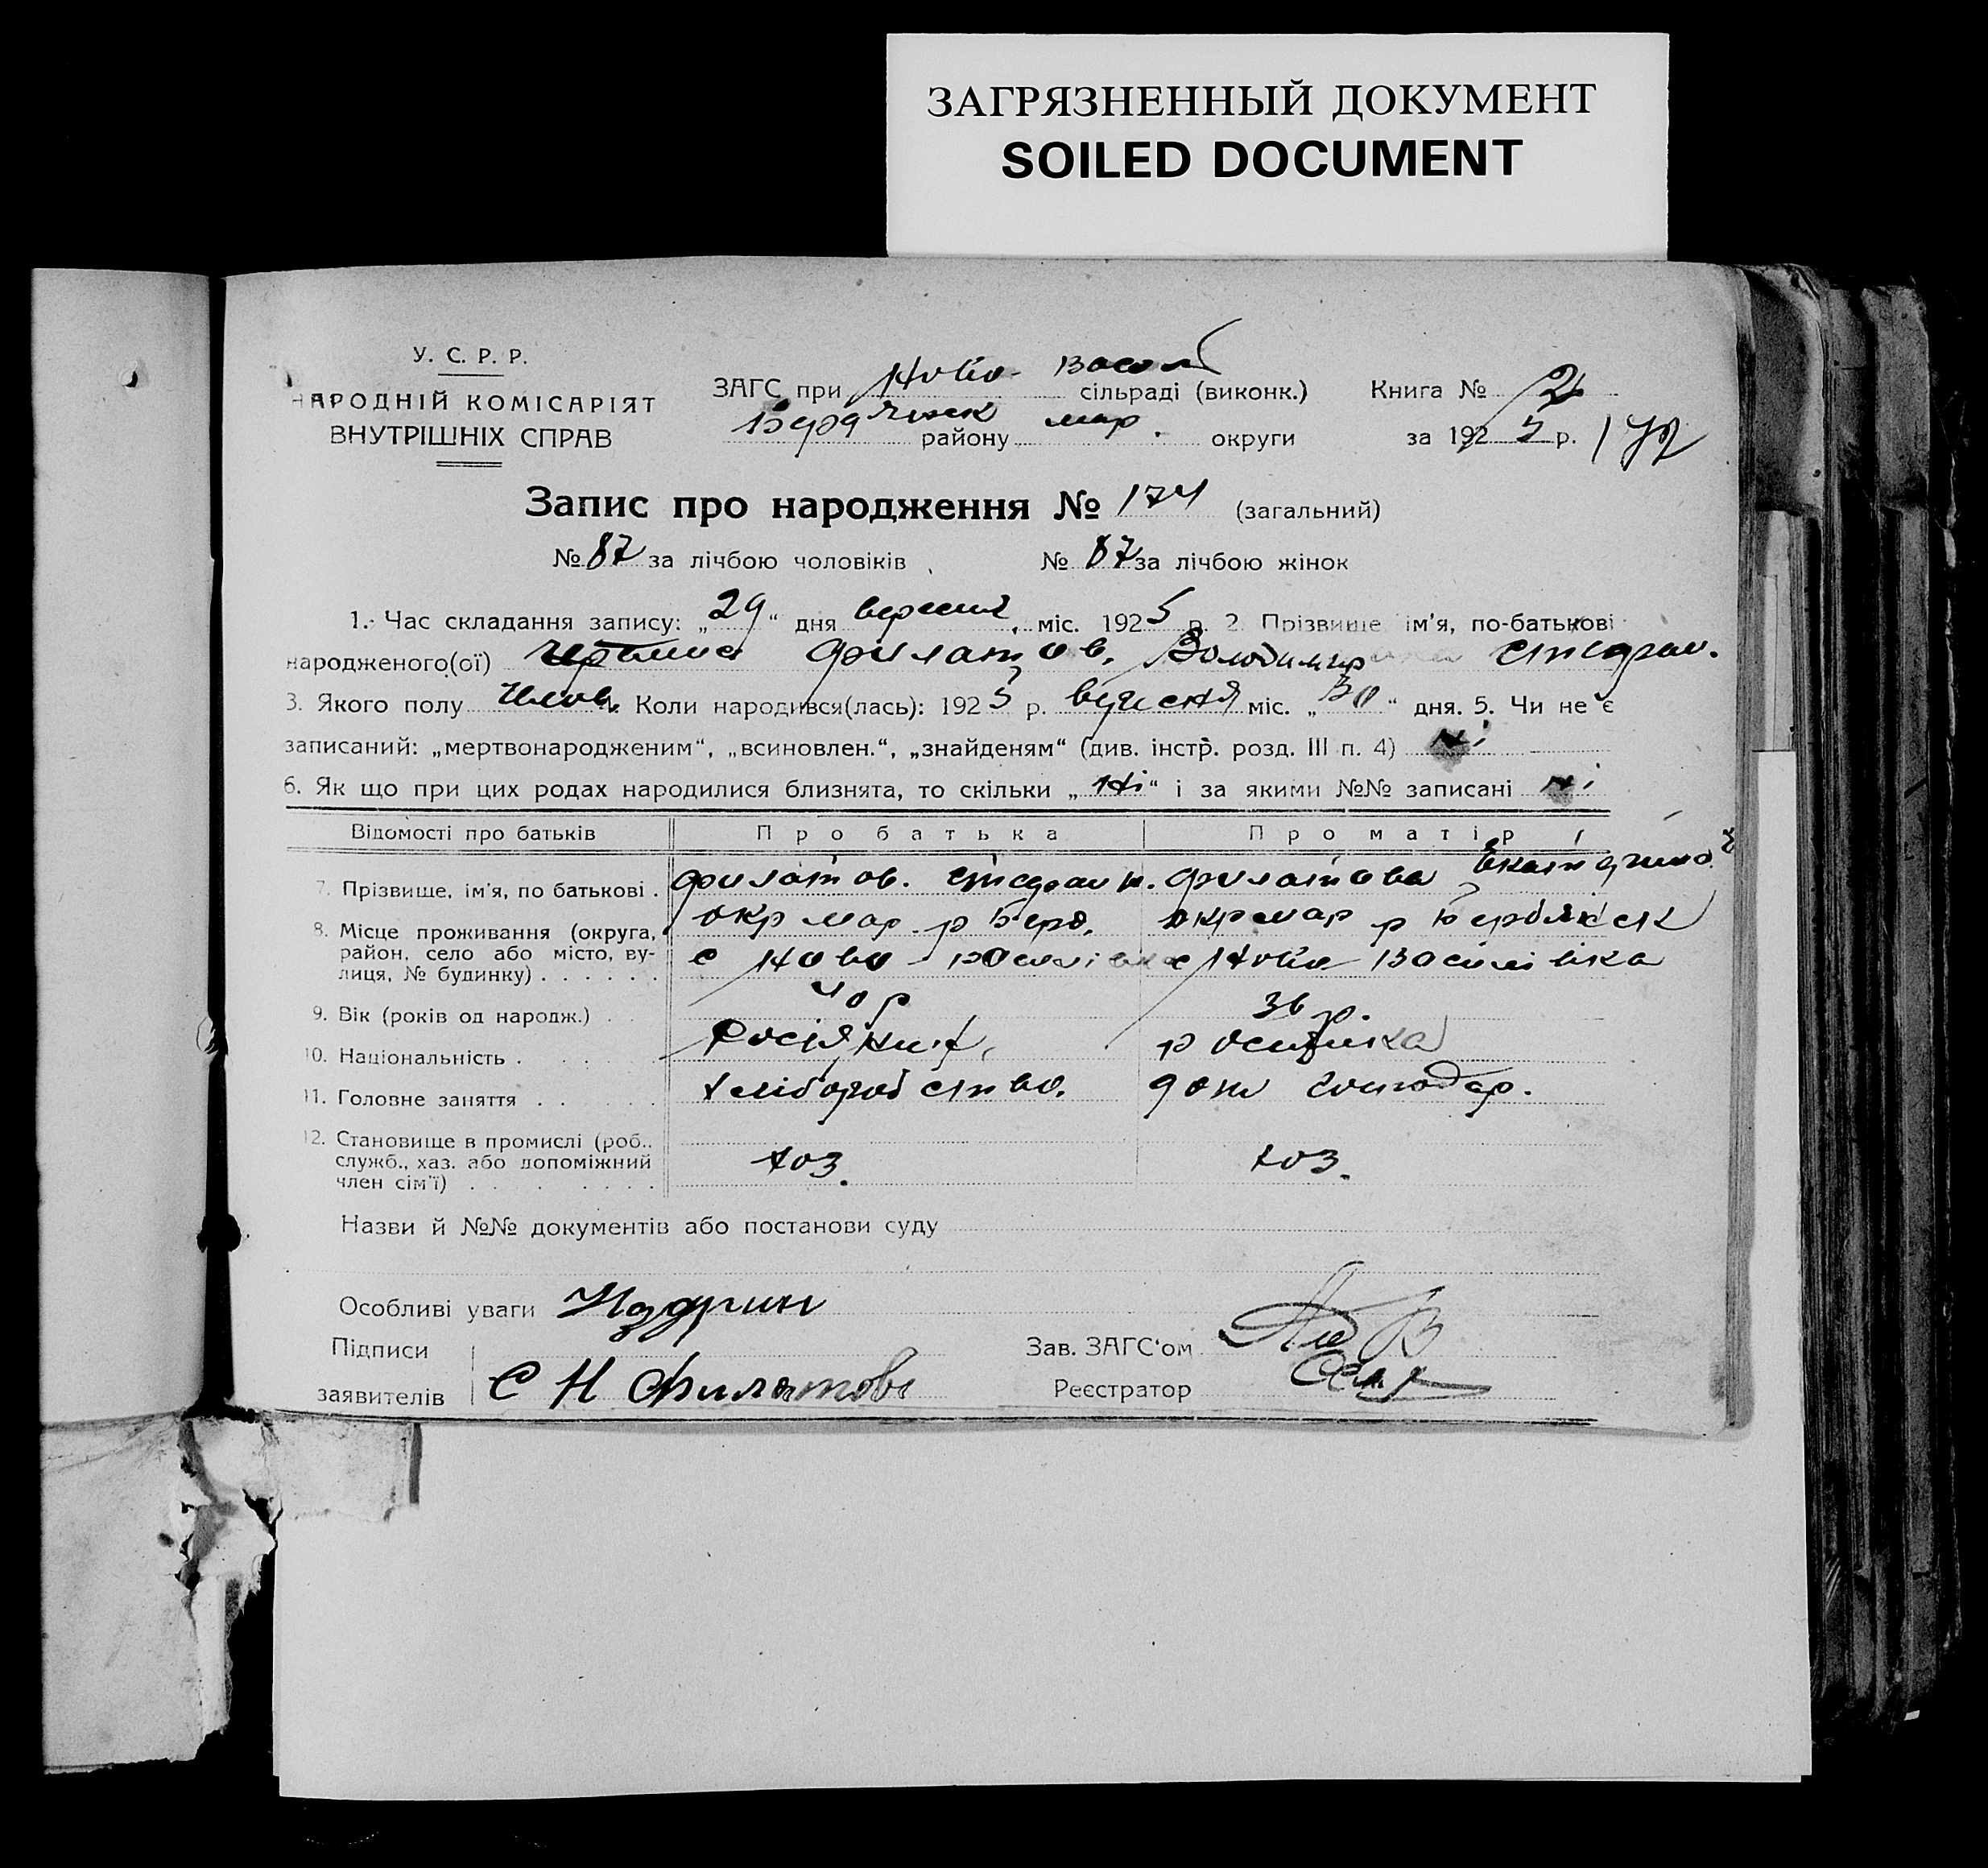 ЗАГРЯЗНЕННЫЙ ДОКУМЕНТ
SOILED DOCUMENT
У. С. Р. Р.
НАРОДНІЙ КОМІСАРІЯТ
ВНУТРІШНІХ СПРАВ
ЗАГС при Ново-Васил сільраді (виконк.)
Бердянск району мар. округи
Книга № 2
за 1925 р.
Запис про народження № 174 (загальний)
№ 87 за лічбою чоловіків № 87 за лічбою жінок
1. Час складання запису: „29“ дня вересня міс. 1925 р. 2. Прізвище, ім'я, по-батькові
народженого(ої) Филатов, Володимир
3. Якого полу Чолов. Коли народився(лась): 1925 р. міс. „30“ дня. 5. Чи не є
записаний: „мертвонародженим“, „всиновлен.“, „знайденям“ (див. інстр. розд. III п. 4) Ні
6. Як що при цих родах народилися близнята, то скільки „Ні“ і за якими №№ записані Ні
Відомості про батьків Про батька Про матір
7. Прізвище, ім'я, по батькові . Филатов. Филатова
8. Місце проживання (округа, район, село або місто, вулиця, № будинку) . . . . . .
окр мар. р Берд. окр мар р Бердянск
с Ново-Василівка с Ново Василівка
9. Вік (років од народж.) . 40 р 36 р.
10. Національність . . . . Росіянин, росіянка
11. Головне заняття . . . . . хліборобство. дом господар.
12. Становище в промислі (роб., служб., хаз. або допоміжний член сім'ї) . . . . . . . хоз. хоз.
Назви й №№ документів або постанови суду
Особливі уваги
Підписи
заявителів С Н Филатовъ
Зав. ЗАГС'ом
Реєстратор